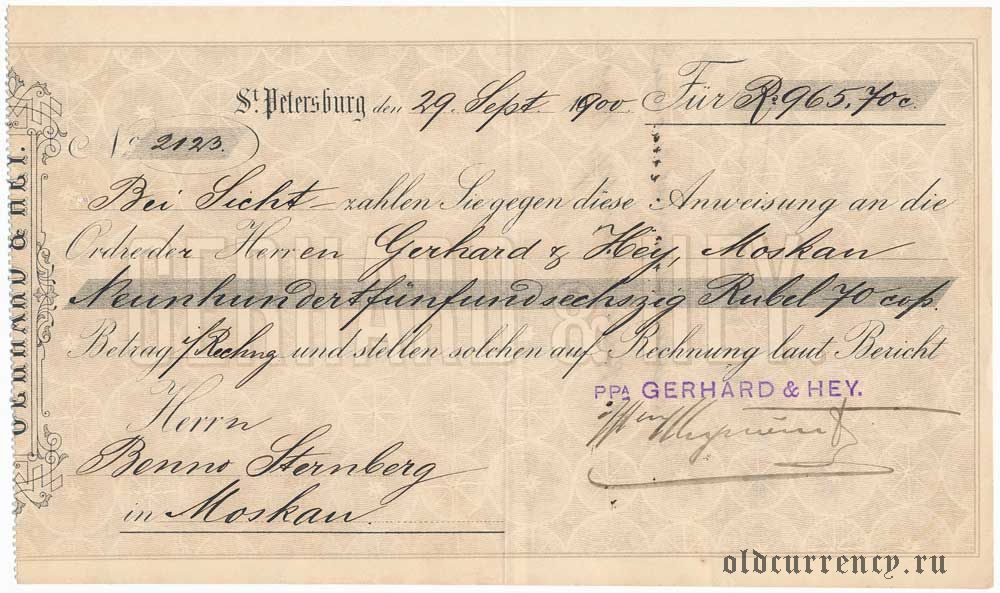 GERHARD & HEY.
St. Petersburg den 29. Sept. 1900 Für R. 965.70 c.
No 2123.
Bei Sicht zahlen Sie gegen diese Anweisung an die
Ordre der Herren Gerhard & Hey, Moskau
Neunhundertfünfundsechszig Rubel 70 cop.
Betrag /Rechng und stellen solchen auf Rechnung laut Bericht
GERHARD & HEY
PPA GERHARD & HEY.
Herrn
Benno Sternberg
in Moskau.
oldcurrency.ru